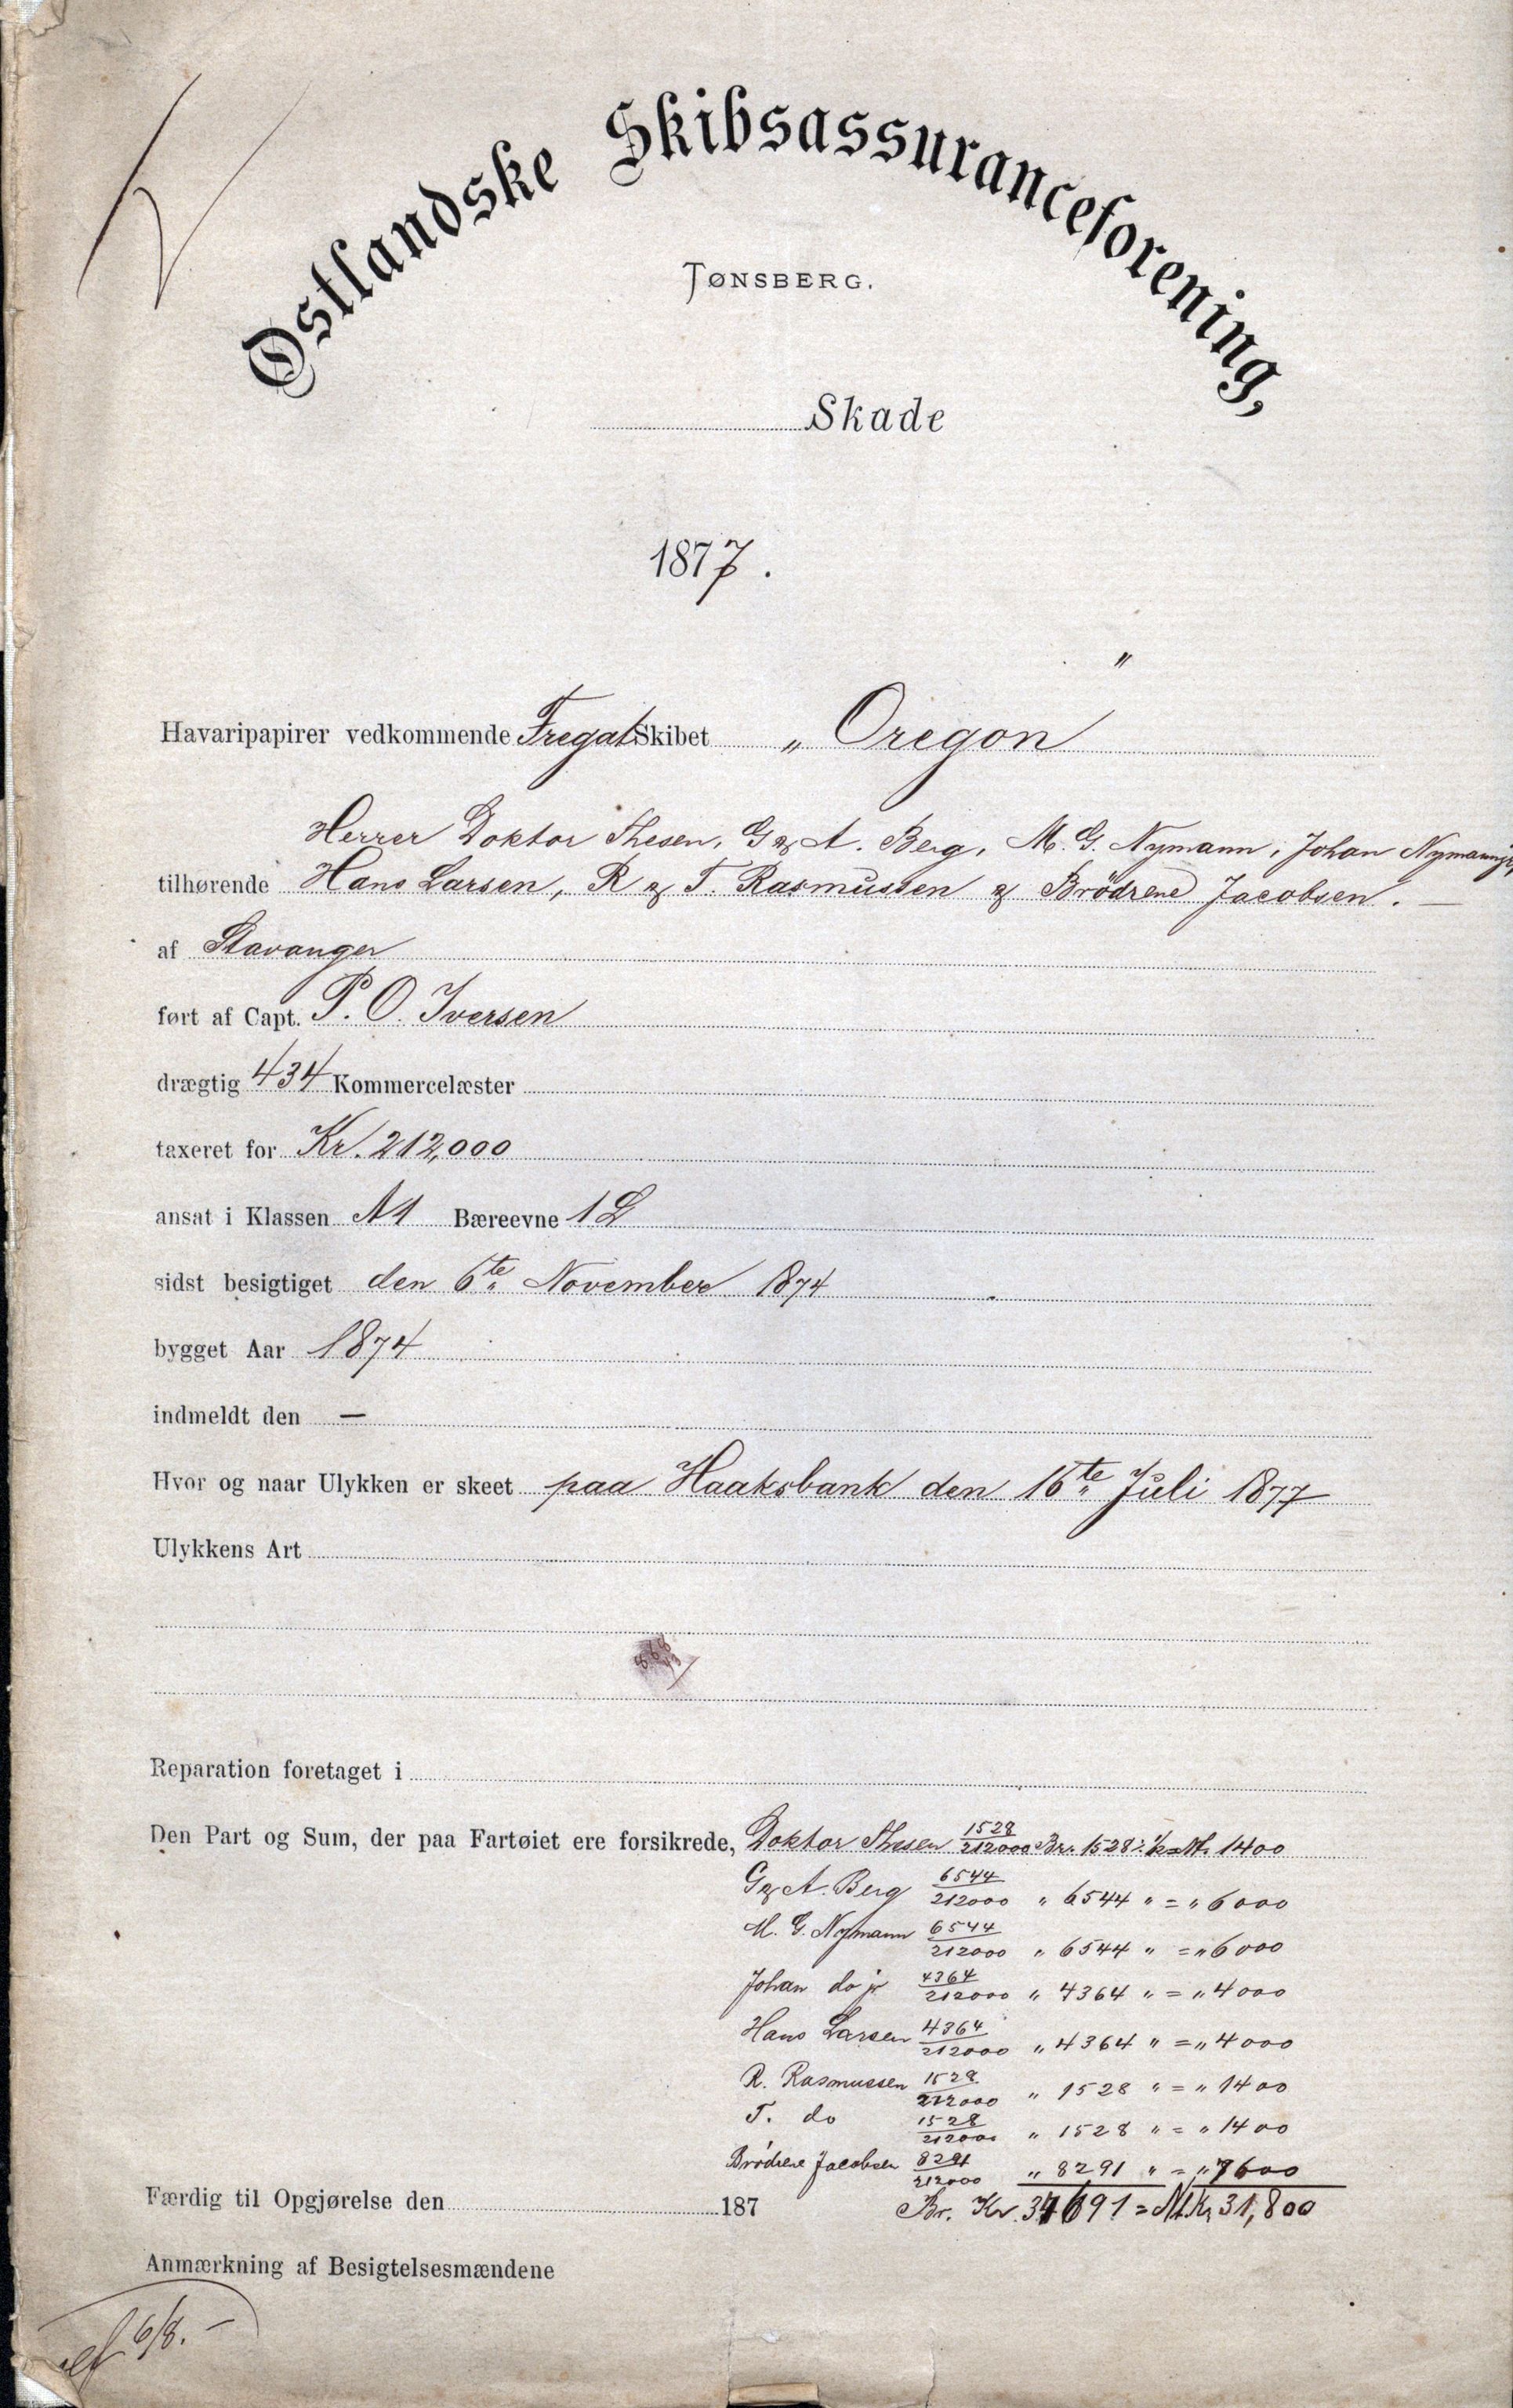 Østlandske Skibsassuranceforening,
TØNSBERG.
Skade
1877.
Havaripapirer vedkommende Fregat Skibet „Oregon"
Herrer Doktor Thesen, G & A. Berg, M. G. Nymann, Johan Nymann jr,
tilhørende Hans Larsen, R & T. Rasmussen & Brödrene Jacobsen. —
af Stavanger
ført af Capt. P. O. Iversen
drægtig 434 Kommercelæster
taxeret for Kr. 212,000
ansat i Klassen A1 Bæreevne 1 L
sidst besigtiget den 6te November 1874
bygget Aar 1874
indmeldt den —
Hvor og naar Ulykken er skeet paa Haaksbank den 16te Juli 1877
Ulykkens Art
Reparation foretaget i
Den Part og Sum, der paa Fartøiet ere forsikrede, Doktor Thesen 1528/212000 Br. 1528 = Nt. 1400
G & A. Berg 6544/212000 " 6544 " = " 6000
M. G. Nymann 6544/212000 " 6544 " = " 6000
Johan do jr 4364/212000 " 4364 " = " 4000
Hans Larsen 4364/212000 " 4364 " = " 4000
R. Rasmussen 1528/212000 " 1528 " = " 1400
T. do 1528/212000 " 1528 " = " 1400
Brödrene Jacobsen 8291/212000 " 8291 " = " 7600
Færdig til Opgjørelse den 187 Br. Kr. 34691 = Nt. Kr. 31,800
Anmærkning af Besigtelsesmændene
6/8. –